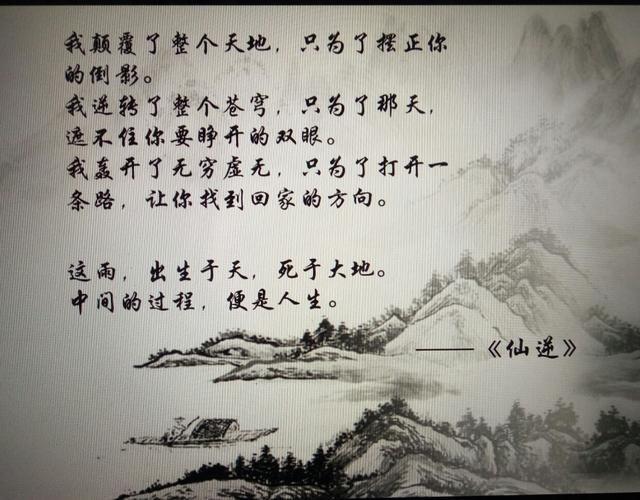 我颠覆了整个天地，只为了摆正你
的倒影。
我逆转了整个苍穹，只为了那天，
遮不住你要睁开的双眼。
我轰开了无穷虚无，只为了打开一
条路，让你找到回家的方向。
这雨，出生于天，死于大地。
中间的过程，便是人生。
——《仙逆》